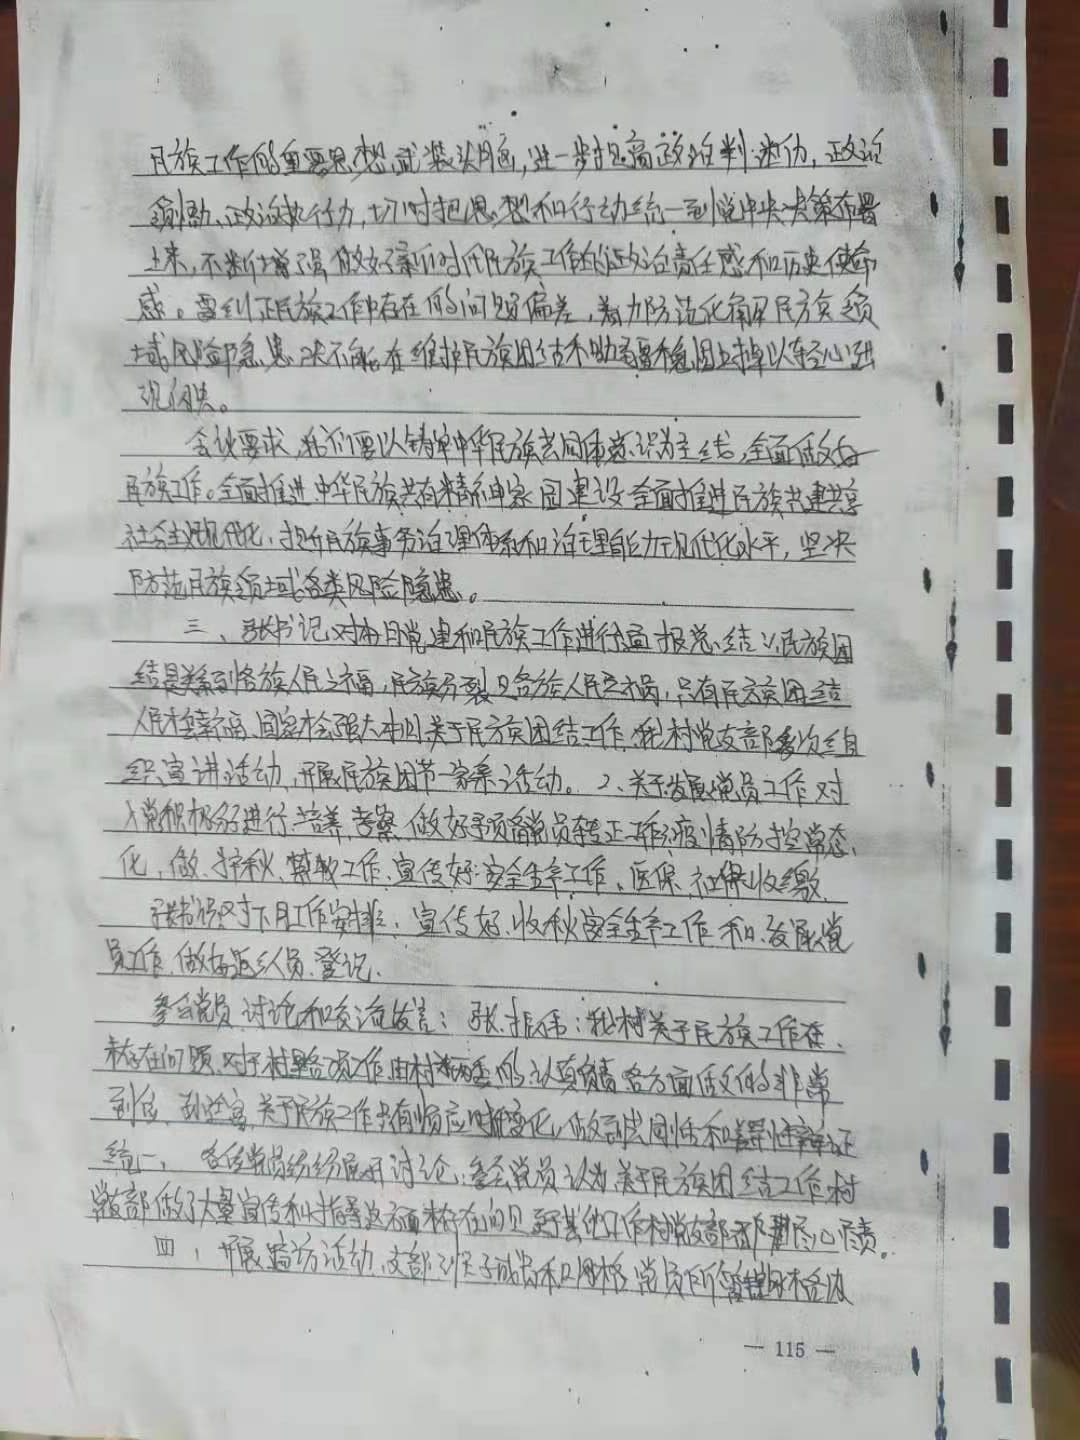 民族工作的重要思想武装头脑,进一步提高政治判断力,政治
领悟力、政治执行力,切时把思想和行动统一到党中央决策布署
上来,不断增强做好新时代民族工作的政治责任感和历史使命
感。要纠正民族工作中存在的问题偏差,着力防范化解民族领
域风险隐患,决不能在维护民族团结和边疆稳固上掉以轻心出
现闪失。
会议要求,我们要以铸牢中华民族共同体意识为主线,全面做好
民族工作。全面推进中华民族共有精神家园建设,全面推进民族共建共享
社会主义现代化,提升民族事务治理体系和治理能力现代化水平,坚决
防范民族领域各类风险隐患。
三、张书记:对本月党建和民族工作进行通报总结 1、民族团
结是关系到各族人民之福,民族分裂是各族人民之祸,只有民族团结
人民才幸福、国家才会强大本月关于民族团结工作,我村党支部多次组
织宣讲活动,开展民族团节一家亲活动。2、关于发展党员工作 对
入党积极分子进行培养,考察,做好预备党员转正工作 疫情防控常态
化,做 护秋、禁牧工作、宣传好 安全生产工作、医保、社保收缴
张书记对下月工作安排:宣传好、收秋安全生产工作 和、发展党
员工作、做好返乡人员、登记、
参会党员讨论和交流发言:张振伟:我村关于民族工作不
存在问题,对于村里各项工作由村两委的认真负责 各方面做的非常
到位、关于民族工作只有顺应时代变化,做到共同性和差异性辩证
统一、各位党员纷纷展开讨论,参会党员认为关于民族团结工作村
党支部做了大量宣传和指导这方面不存在问题 至于其他工作村党支部都尽心尽责。
四、开展走访活动、支部班子成员和网格党员所管辖网格内
— 115 —